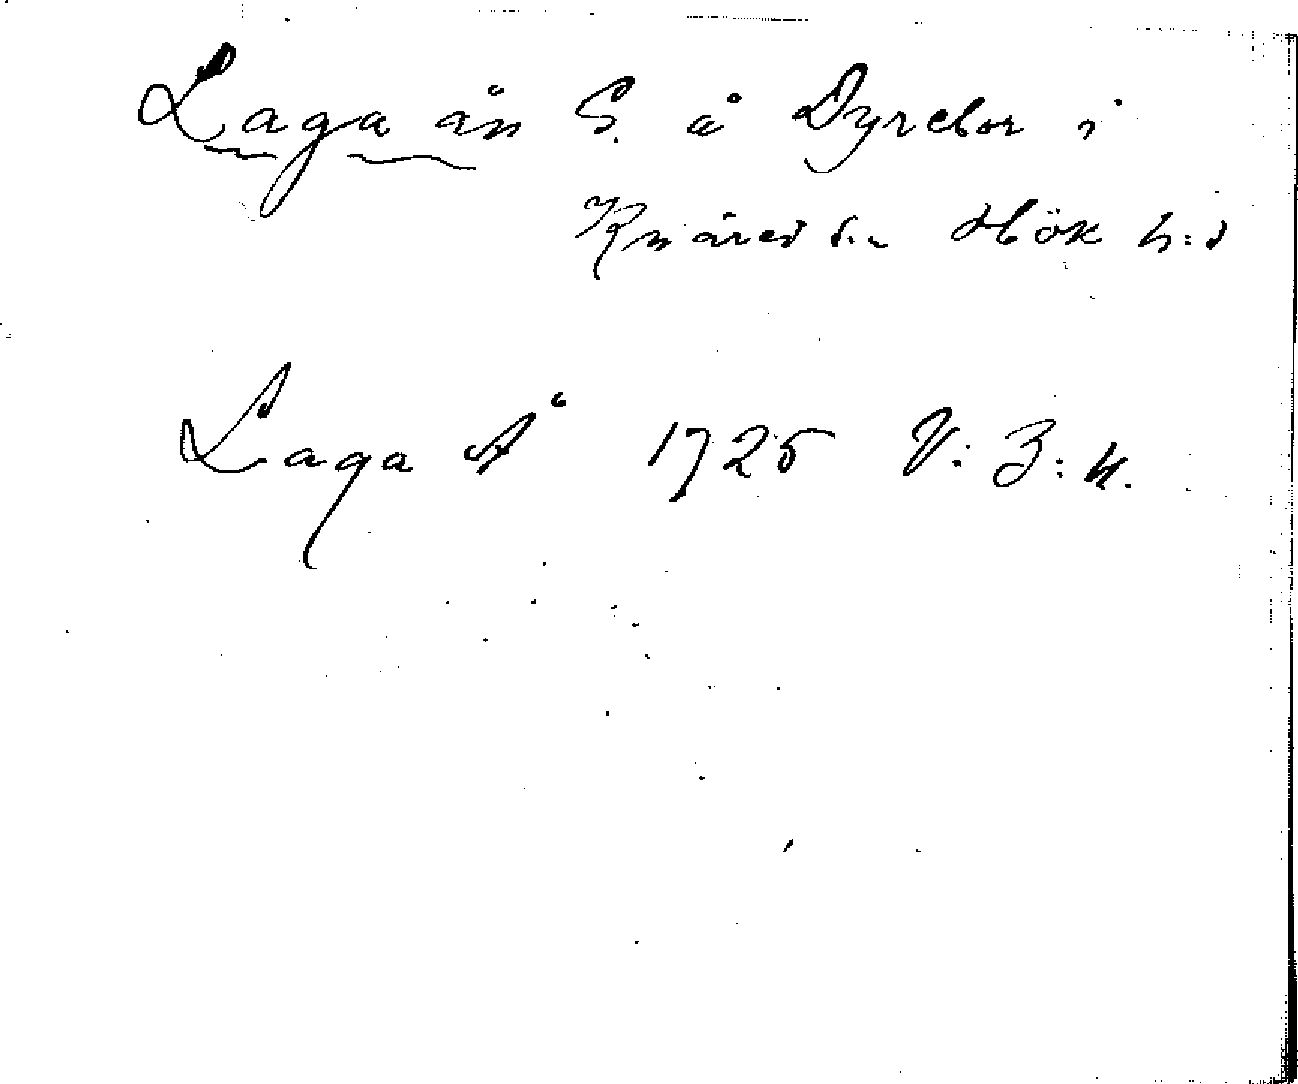 Laga ån S. å Dyrebor i
Knäred s:n Hök h:d
Laga Å 1725 V: 3: 4.